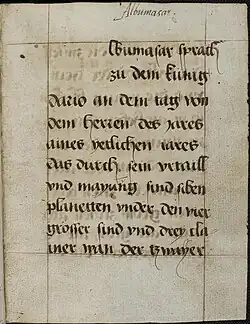 Albumasar
Albumasar sprach
zu dem kunig
dario an dem tag von
dem herren des iares
aines yetlichen iares
das durch sein vrtaill
vnd maynug sind siben
planetten vnder den vier
grosser sind vnd drey clai
ner wan der zwayer